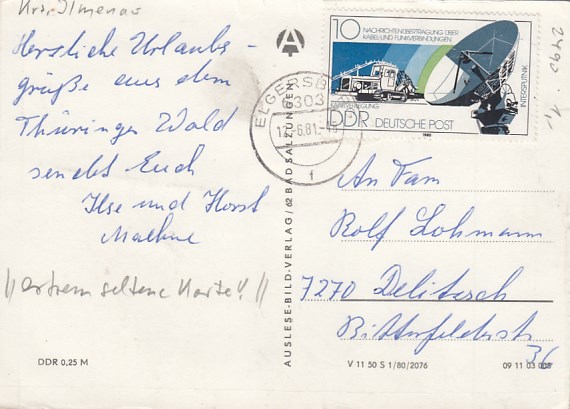 Krs. Ilmenau
Herzliche Urlaubs-
grüße aus dem
Thüringer Wald
sendet Euch
Ilse und Horst
//extrem seltene Karte!//
DDR 0,25 M
AUSLESE-BILD-VERLAG/62 BAD SALZUNGEN
10 NACHRICHTENÜBERTRAGUNG ÜBER
KABEL- UND FUNKVERBINDUNGEN
INTERSPUTNIK
DDR DEUTSCHE POST
1980
ELGERSB
6303
.6.81.-
f
2490
1,-
An Fam.
Rolf Lohmann
7270 Delitzsch
Bitterfelderstr
36
V 11 50 S 1/80/2076
09 11 03 008